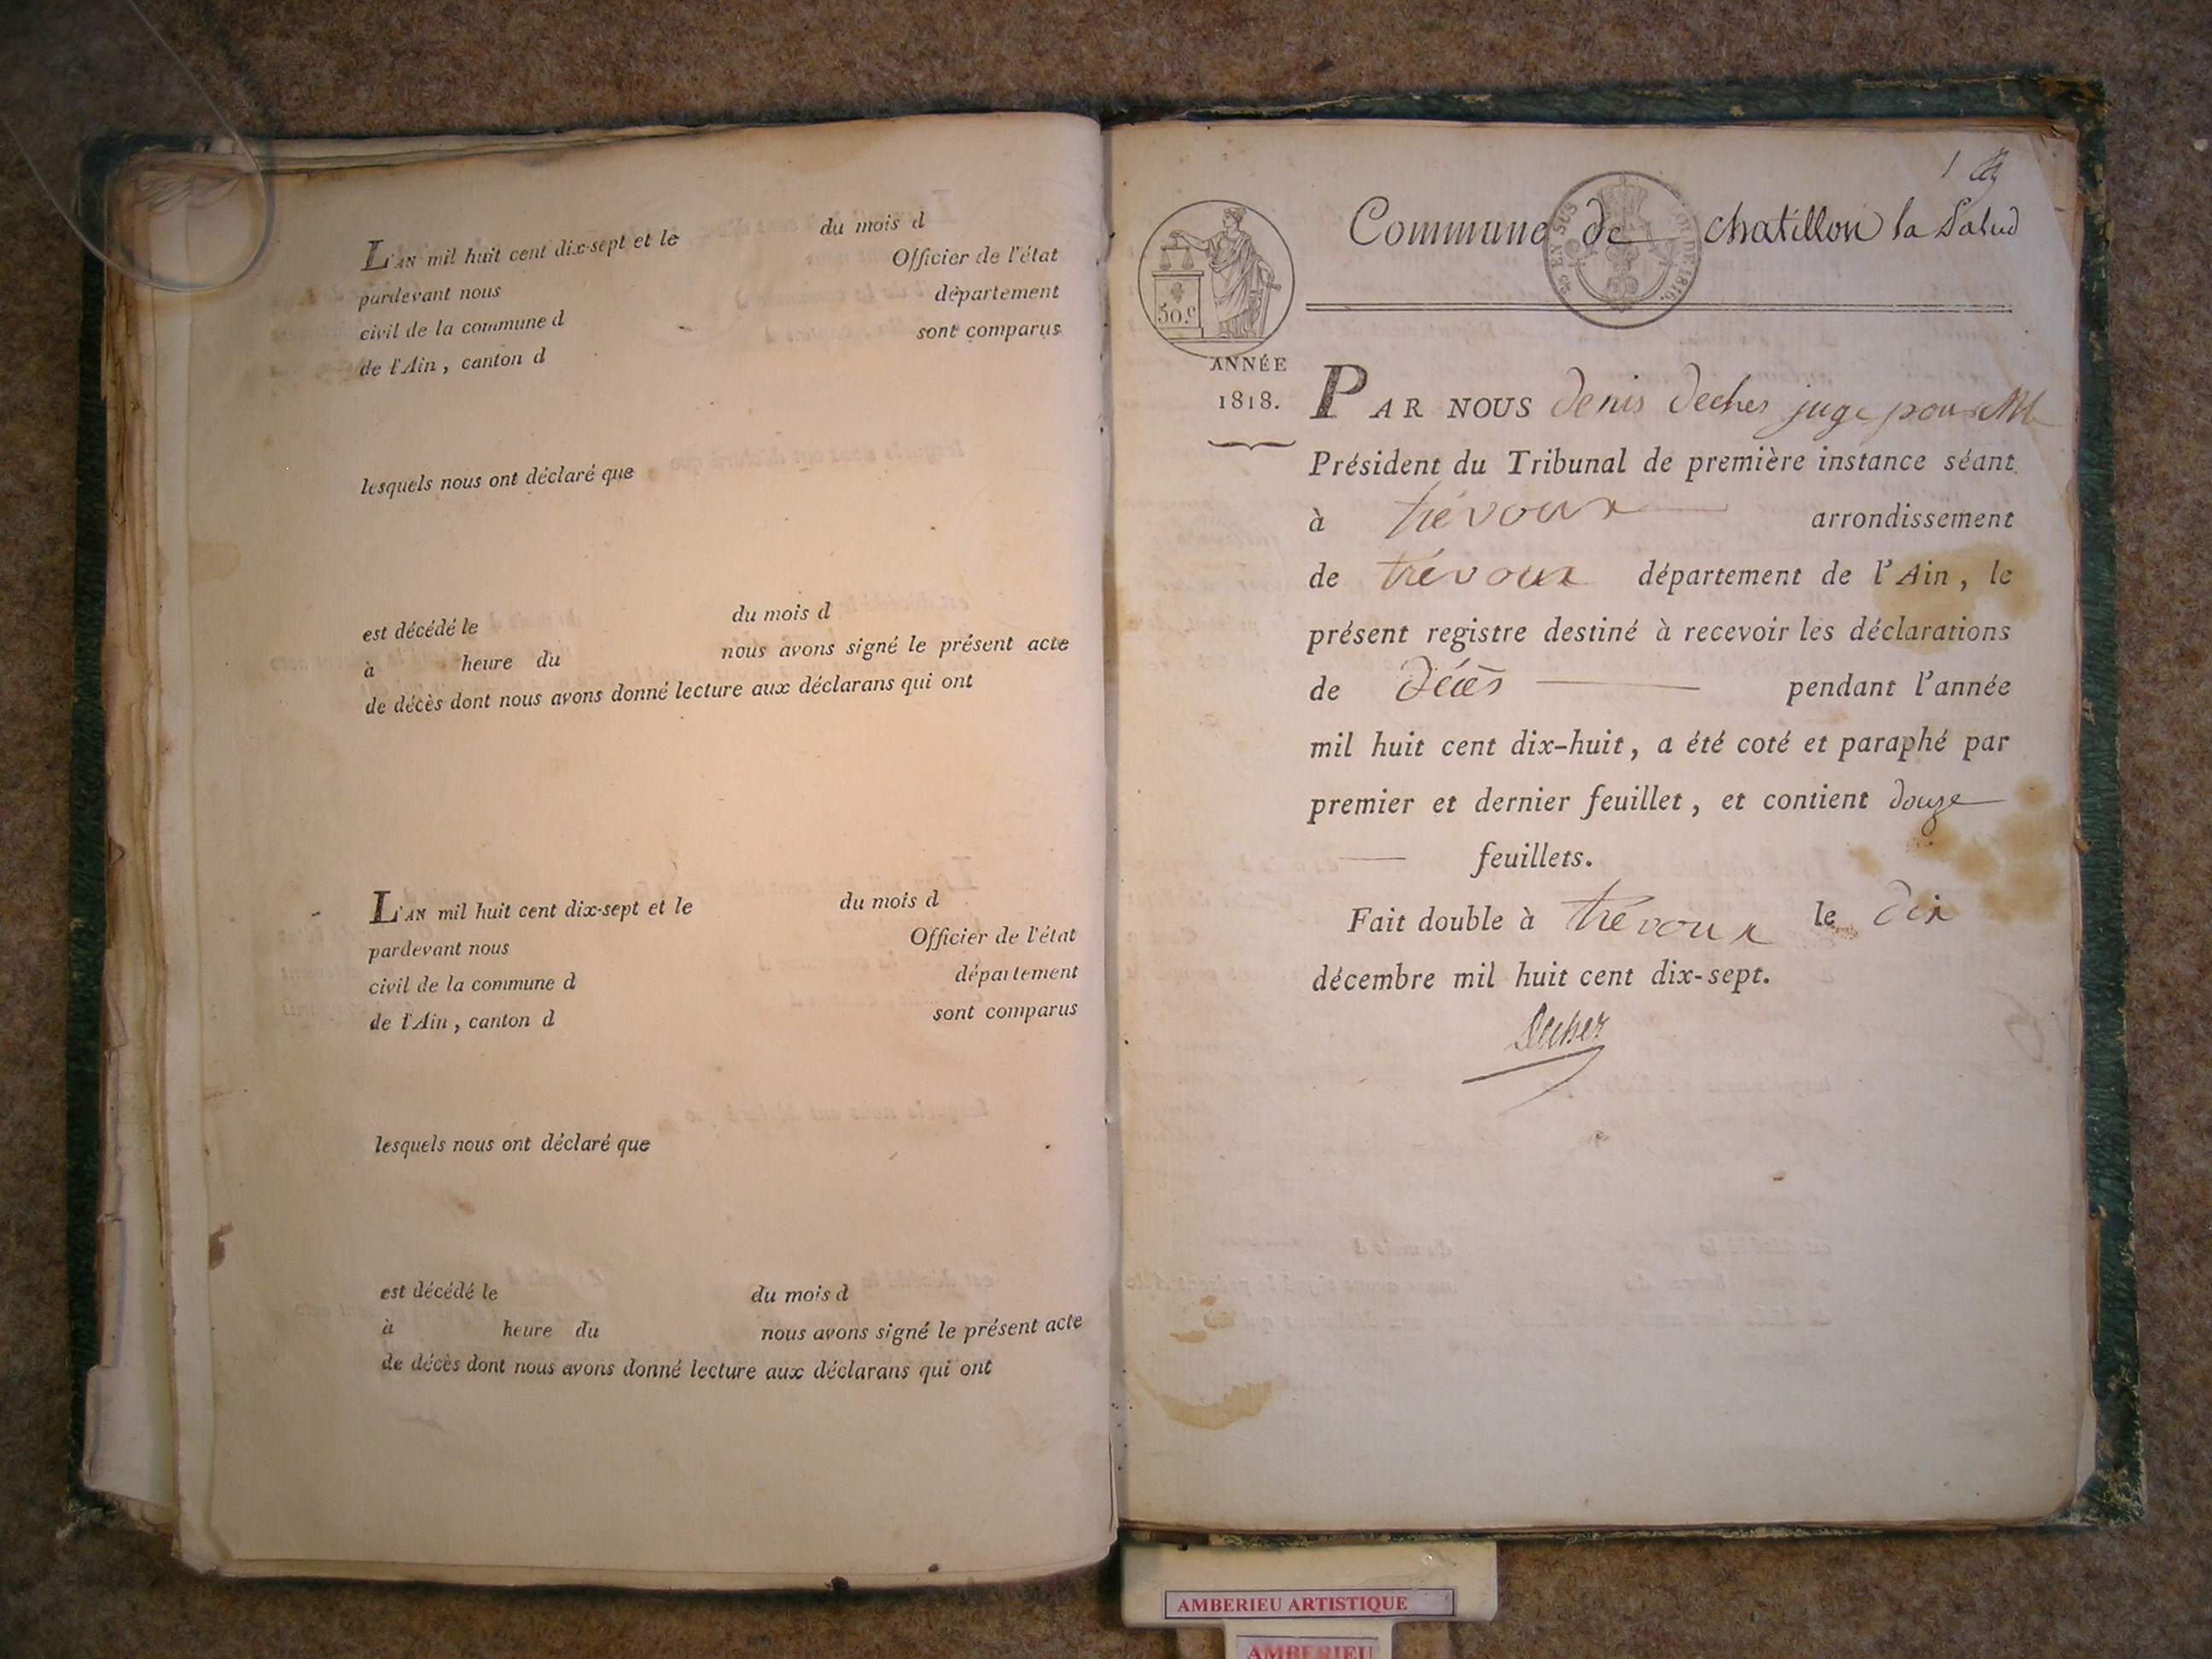 L'AN mil huit cent dix-sept et le du mois d
pardevant nous Officier de l'état
civil de la commune d département
de l'Ain, canton d sont comparus
lesquels nous ont déclaré que
est décédé le du mois d
à heure du nous avons signé le présent acte
de décès dont nous avons donné lecture aux déclarans qui ont
L'AN mil huit cent dix-sept et le du mois d
pardevant nous Officier de l'état
civil de la commune d département
de l'Ain, canton d sont comparus
lesquels nous ont déclaré que
est décédé le du mois d
à heure du nous avons signé le présent acte
de décès dont nous avons donné lecture aux déclarans qui ont
1
Commune de chatillon la Palud
EN SUS
DE 1816.
50.c
ANNÉE
1818.
PAR NOUS denis dechez juge pour M
Président du Tribunal de première instance séant
à trévoux arrondissement
de trévoux département de l'Ain, le
présent registre destiné à recevoir les déclarations
de décès pendant l'année
mil huit cent dix-huit, a été coté et paraphé par
premier et dernier feuillet, et contient douze
feuillets.
Fait double à trévoux le dix
décembre mil huit cent dix-sept.
Dechez
AMBERIEU ARTISTIQUE
AMBERIEU